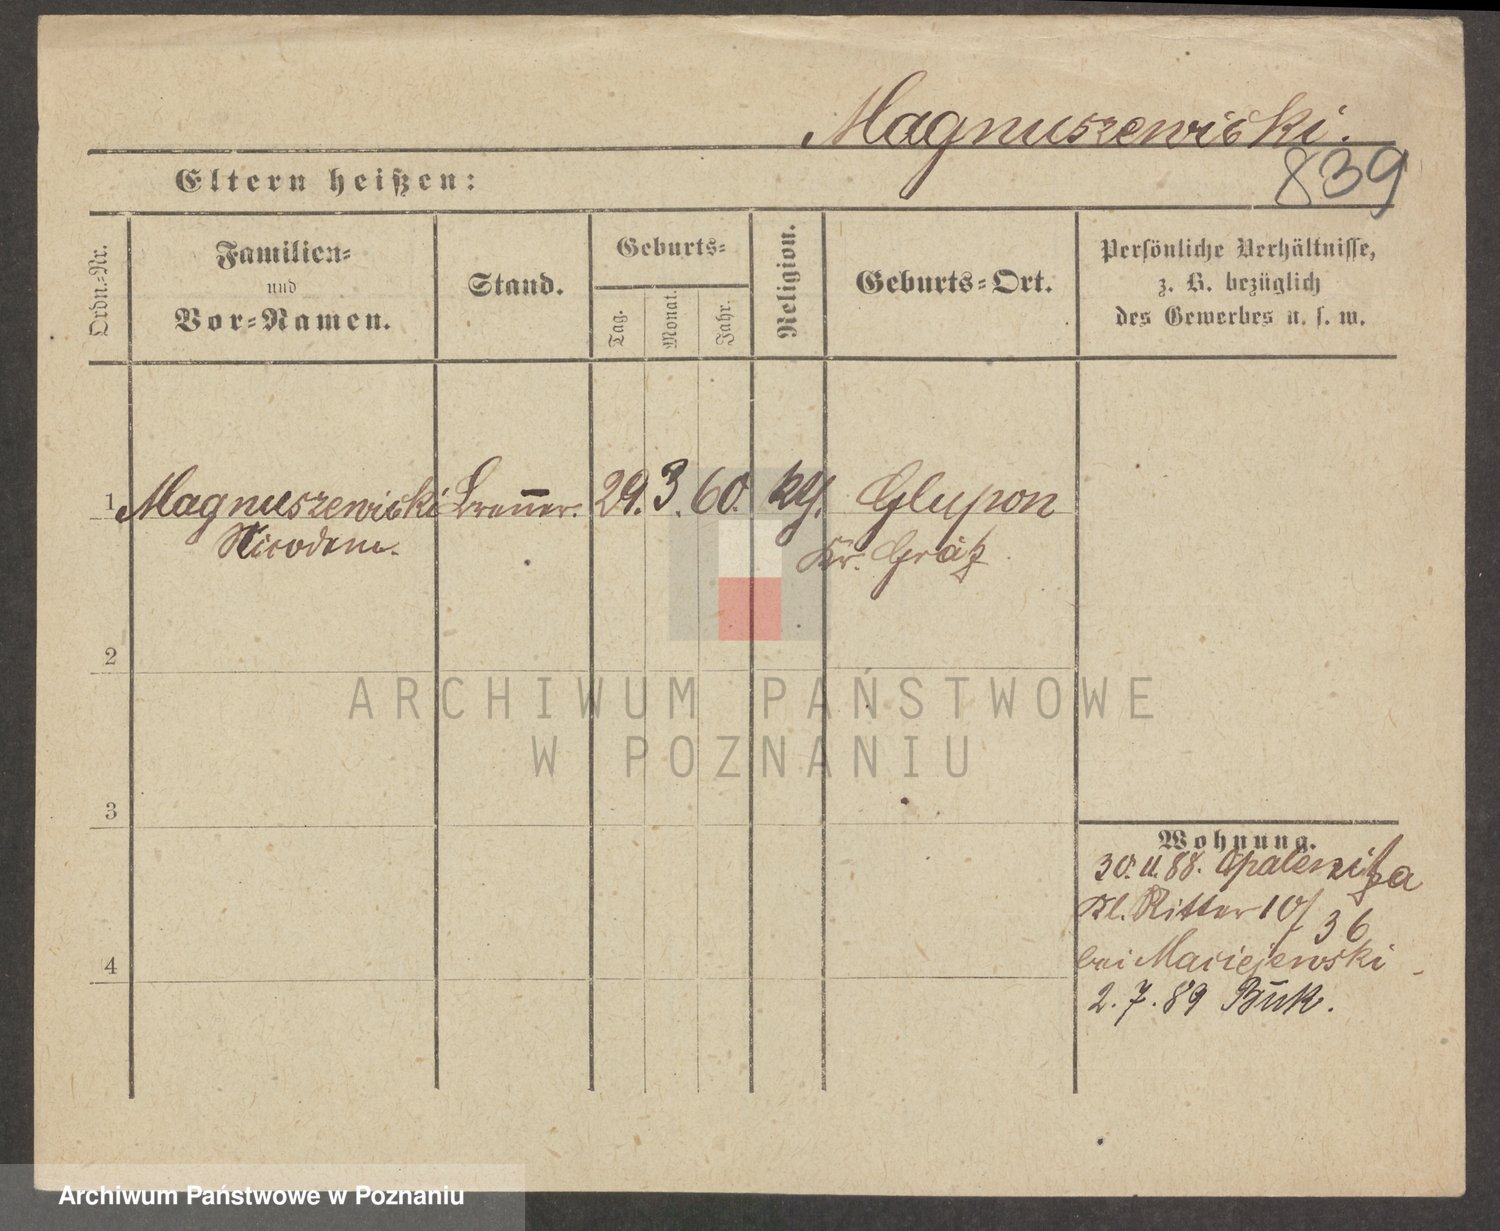 Magnuszewicki.
839
Eltern heißen:
Ordn.-Nr.
Familien-
und
Vor-Namen.
Stand.
Geburts-
Tag.
Monat.
Jahr.
Religion.
Geburts-Ort.
Persönliche Verhältnisse,
z. B. bezüglich
des Gewerbes u. s. w.
1 Magnuszewicki Brenner. 29. 3. 60. kg. Glupon
Nicodem. Kr. Grätz
2
3
4
Wohnung.
30. 11. 88. Opalenitza
Kl. Ritter 10/
36
bei Maciejewski
2. 7. 89 Buk.
ARCHIWUM PAŃSTWOWE
W POZNANIU
Archiwum Państwowe w Poznaniu